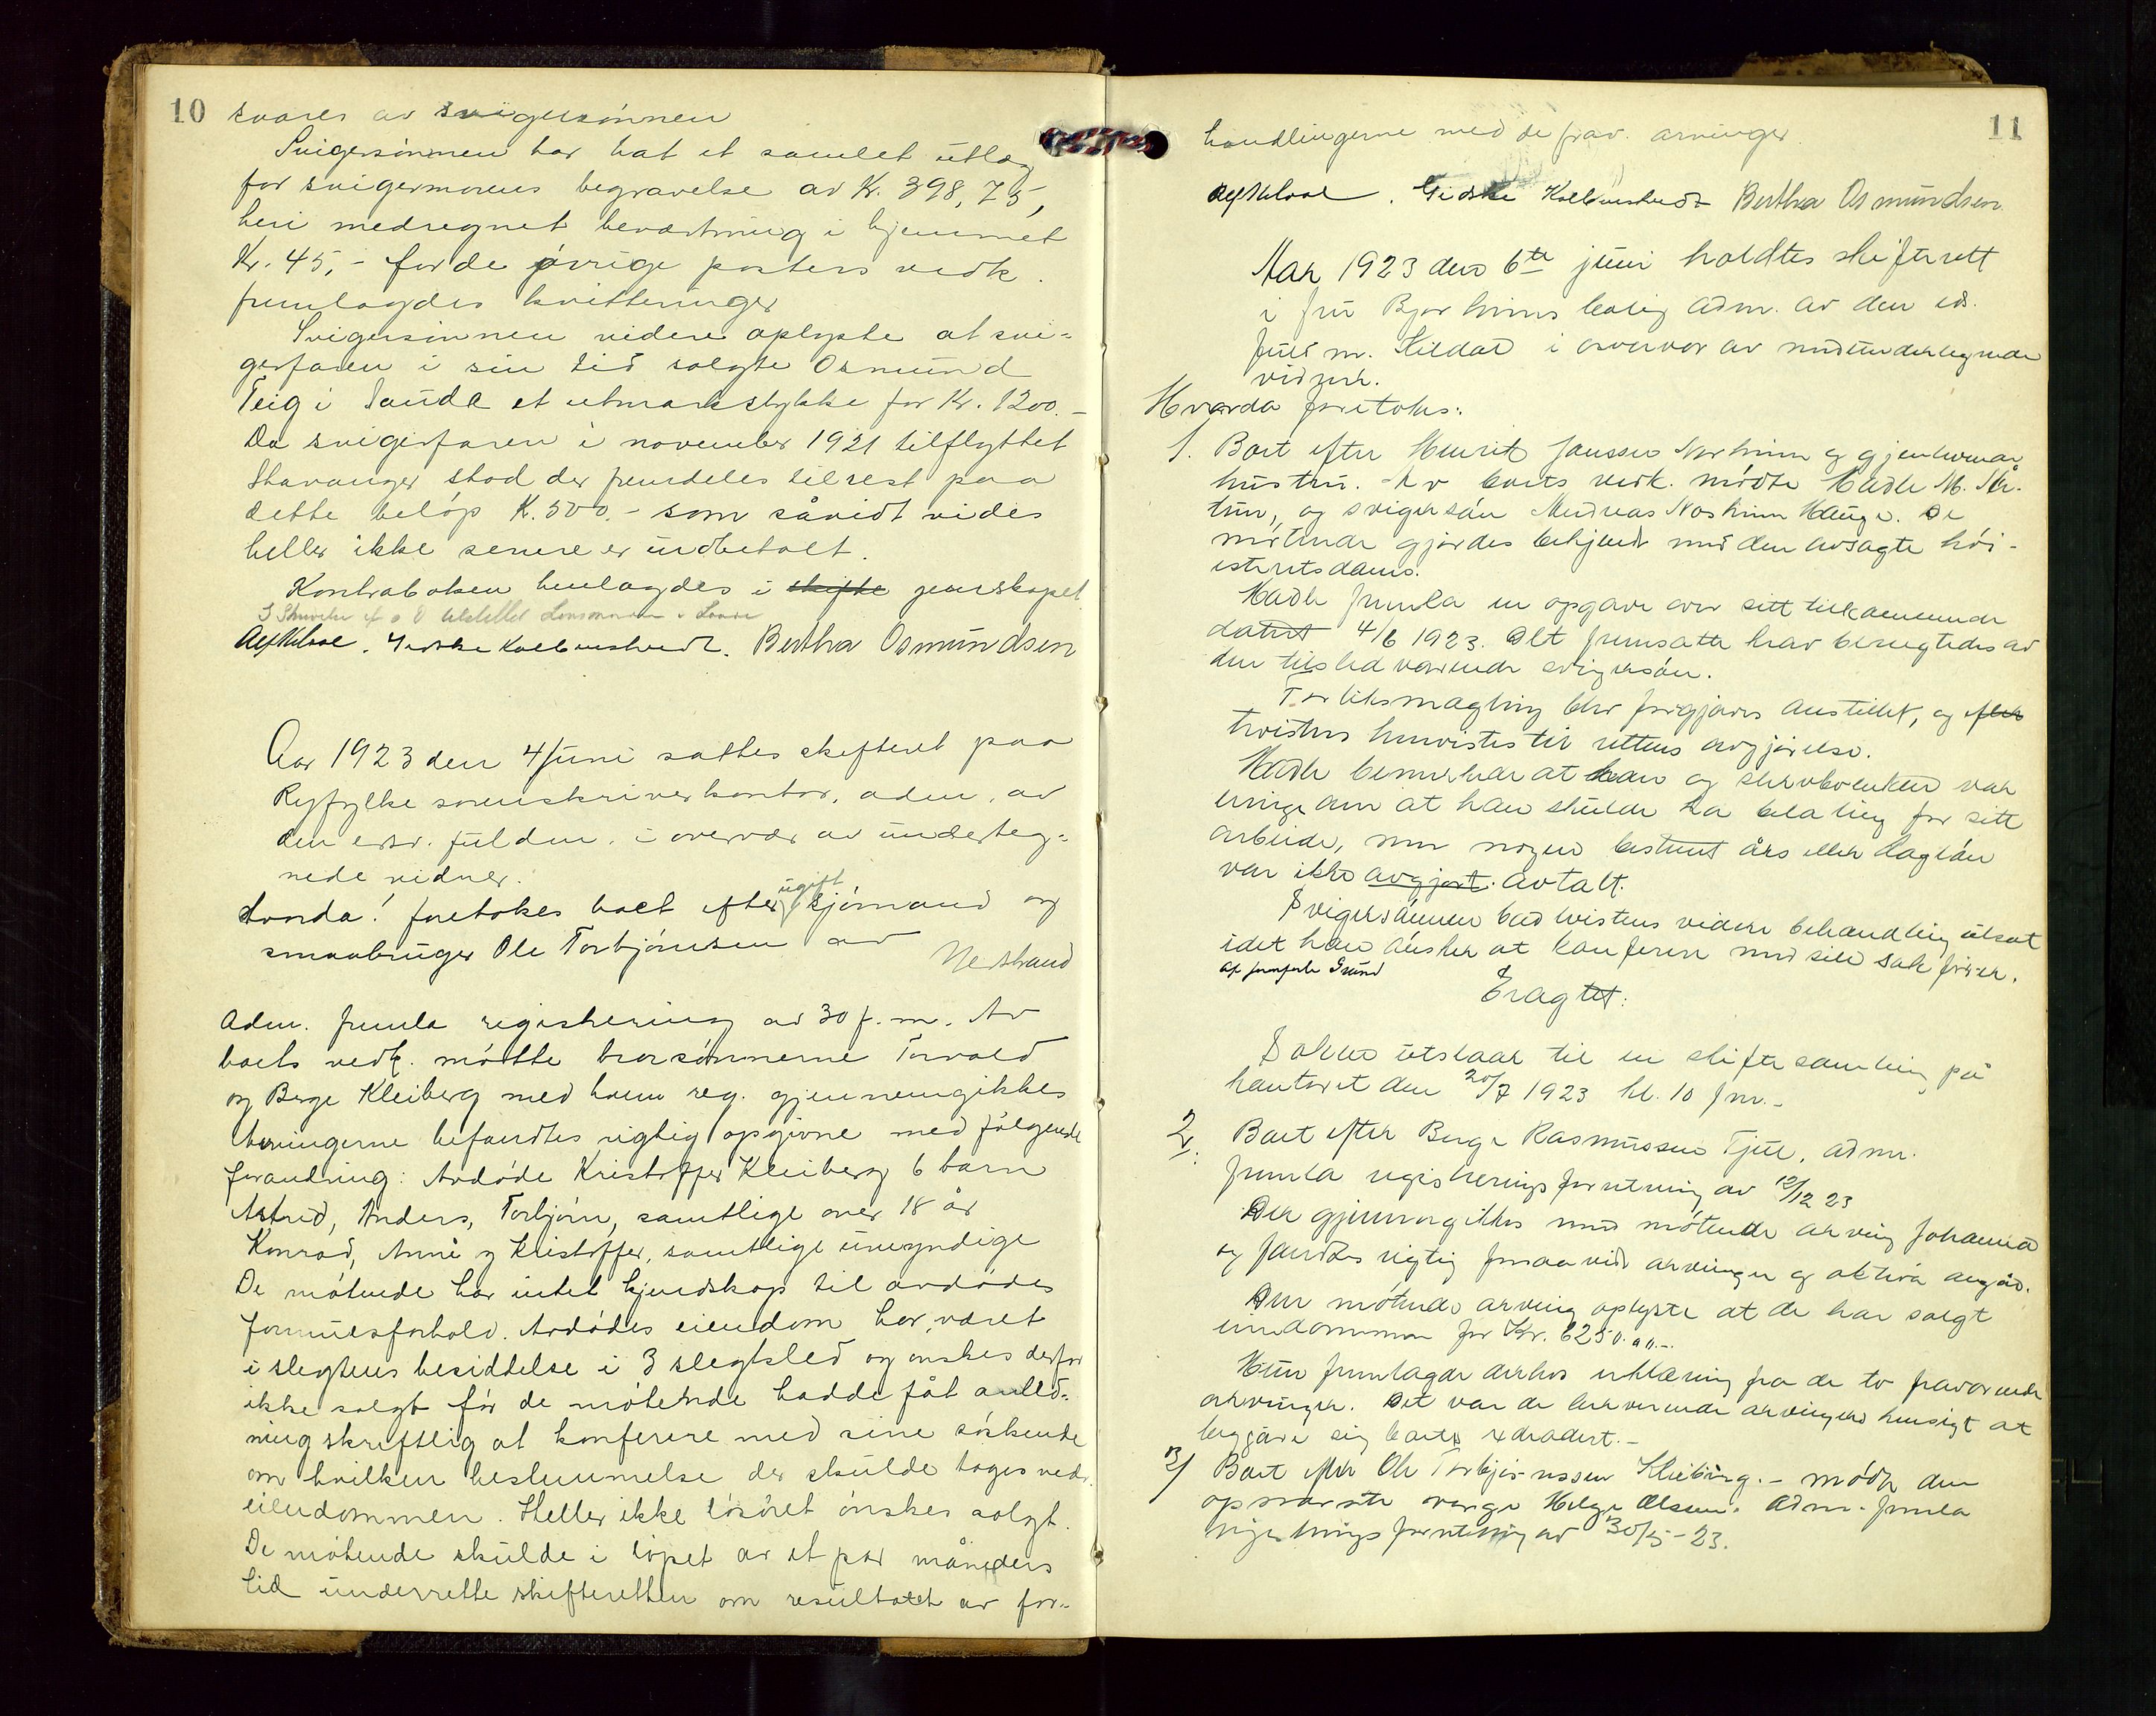 10
svares av svigersønnen
Svigersønnen har hat et samlet utlæg
for svigermorens begravelse av Kr. 398,75,
heri medregnet bevertning i hjemmet
Kr. 45,- for de øvrige posters vedk.
fremlagdes kvitteringer
Svigersønnen videre oplyste at svi-
gerfaren i sin tid solgte Osmund
Teig i Sauda et utmarkstykke for Kr. 1200.-
Da svigerfaren i november 1921 tilflyttet
Stavanger stod der fremdeles til rest paa
dette beløp K. 500.- som såvidt vides
heller ikke senere er indbetalt.
Kontraboken henlagdes i skifte jernskapet
Bertha Osmundsen
Aar 1923 den 4 Juni sattes skifteret paa
Ryfylke sorenskriverkontor, adm. av
den edsv. fuldm. i overvær av underteg-
nede vidner.
Hvorda! foretokes boet efter ugift sjømand og
smaabruger Ole Torbjørnsen av
Nedstrand
Adm. fremla registrering av 30 f. m. Av
boets vedk. møtte brorsønnerne Torvald
og Berge Kleiberg med hvem reg. gjennemgikkes
Arvingerne befandtes rigtig opgivne med følgende
forandring: Avdøde Kristoffer Kleiberg 6 barn
Astrid, Anders, Torbjørn, samtlige over 18 år
Konrad, Anne og Kristoffer, samtlige umyndige
De møtende har intet kjendskap til avdødes
formuesforhold. Avdødes eiendom har været
i slegtens besiddelse i 3 slegtsled og ønskes derfor
ikke solgt før de møtende hadde fåt anled-
ning skriftlig at konferere med sine søskende
om hvilken bestemmelse der skulde tages vedr.
eiendommen. Heller ikke løsøret ønskes solgt.
De møtende skulde i løpet av et par måneders
tid underrette skifteretten om resultatet av for-
11
handlingerne med de frav. arvinger
Bertha Osmundsen
Aar 1923 den 6te juni holdtes skifterett
i fru Bjorheims bolig adm. av den eds.
fuldm. Kildal i overvær av medundertegnede
vidner.
Hvorda foretokes:
1. Boet efter Henrik Jansson Norheim og gjenlevende
hustru. Av boets vedk. mødte Kadle M.
tun, og svigersøn Andreas Norheim Hauge. De
møtende gjordes bekjendt med den avsagte høi-
esteretsdom.
Kadle fremla en opgave over sitt tilkommende
datert 4/6 1923. Alt fremsatte krav benegtedes av
den tilstedværende svigersøn.
Forliksmægling blev forgjæves anstillet, og efter
tvisten henvistes til rettens avgjørelse.
Kadle bemerker at han og stervboenken var
enige om at han skulde ha betaling for sitt
arbeide, men nogen bestemt års eller dagløn
var ikke avgjort. avtalt.
Svigersønnen bad tvistens videre behandling utsat
idet han ønsker at konferere med sin sakfører.
Eragtet:
Saken utstaar til en skiftesamling på
kontoret den 20/7 1923 kl. 10 fm.-
2. Boet efter Berge Rasmussen Tjul, adm.
fremla registreringsforretning av 12/12 23
Den gjennemgikkes med møtende arving Johanna
og fandtes rigtig forsaavidt arvinger og aktiva angår.
Den møtende arving oplyste at de har solgt
eiendommen for Kr. 6250.00.-
Hun fremlagde derhos erklæring fra de to fraværende
arvinger. Det var de herværende arvingers hensigt at
begjære sig boet extradert.-
3/ Boet efter Ole Torbjørnssen Kleiberg.- mødte den
opnævnte verge Helge Olsen. Adm. fremla
registreringsforretning av 30/5-23.